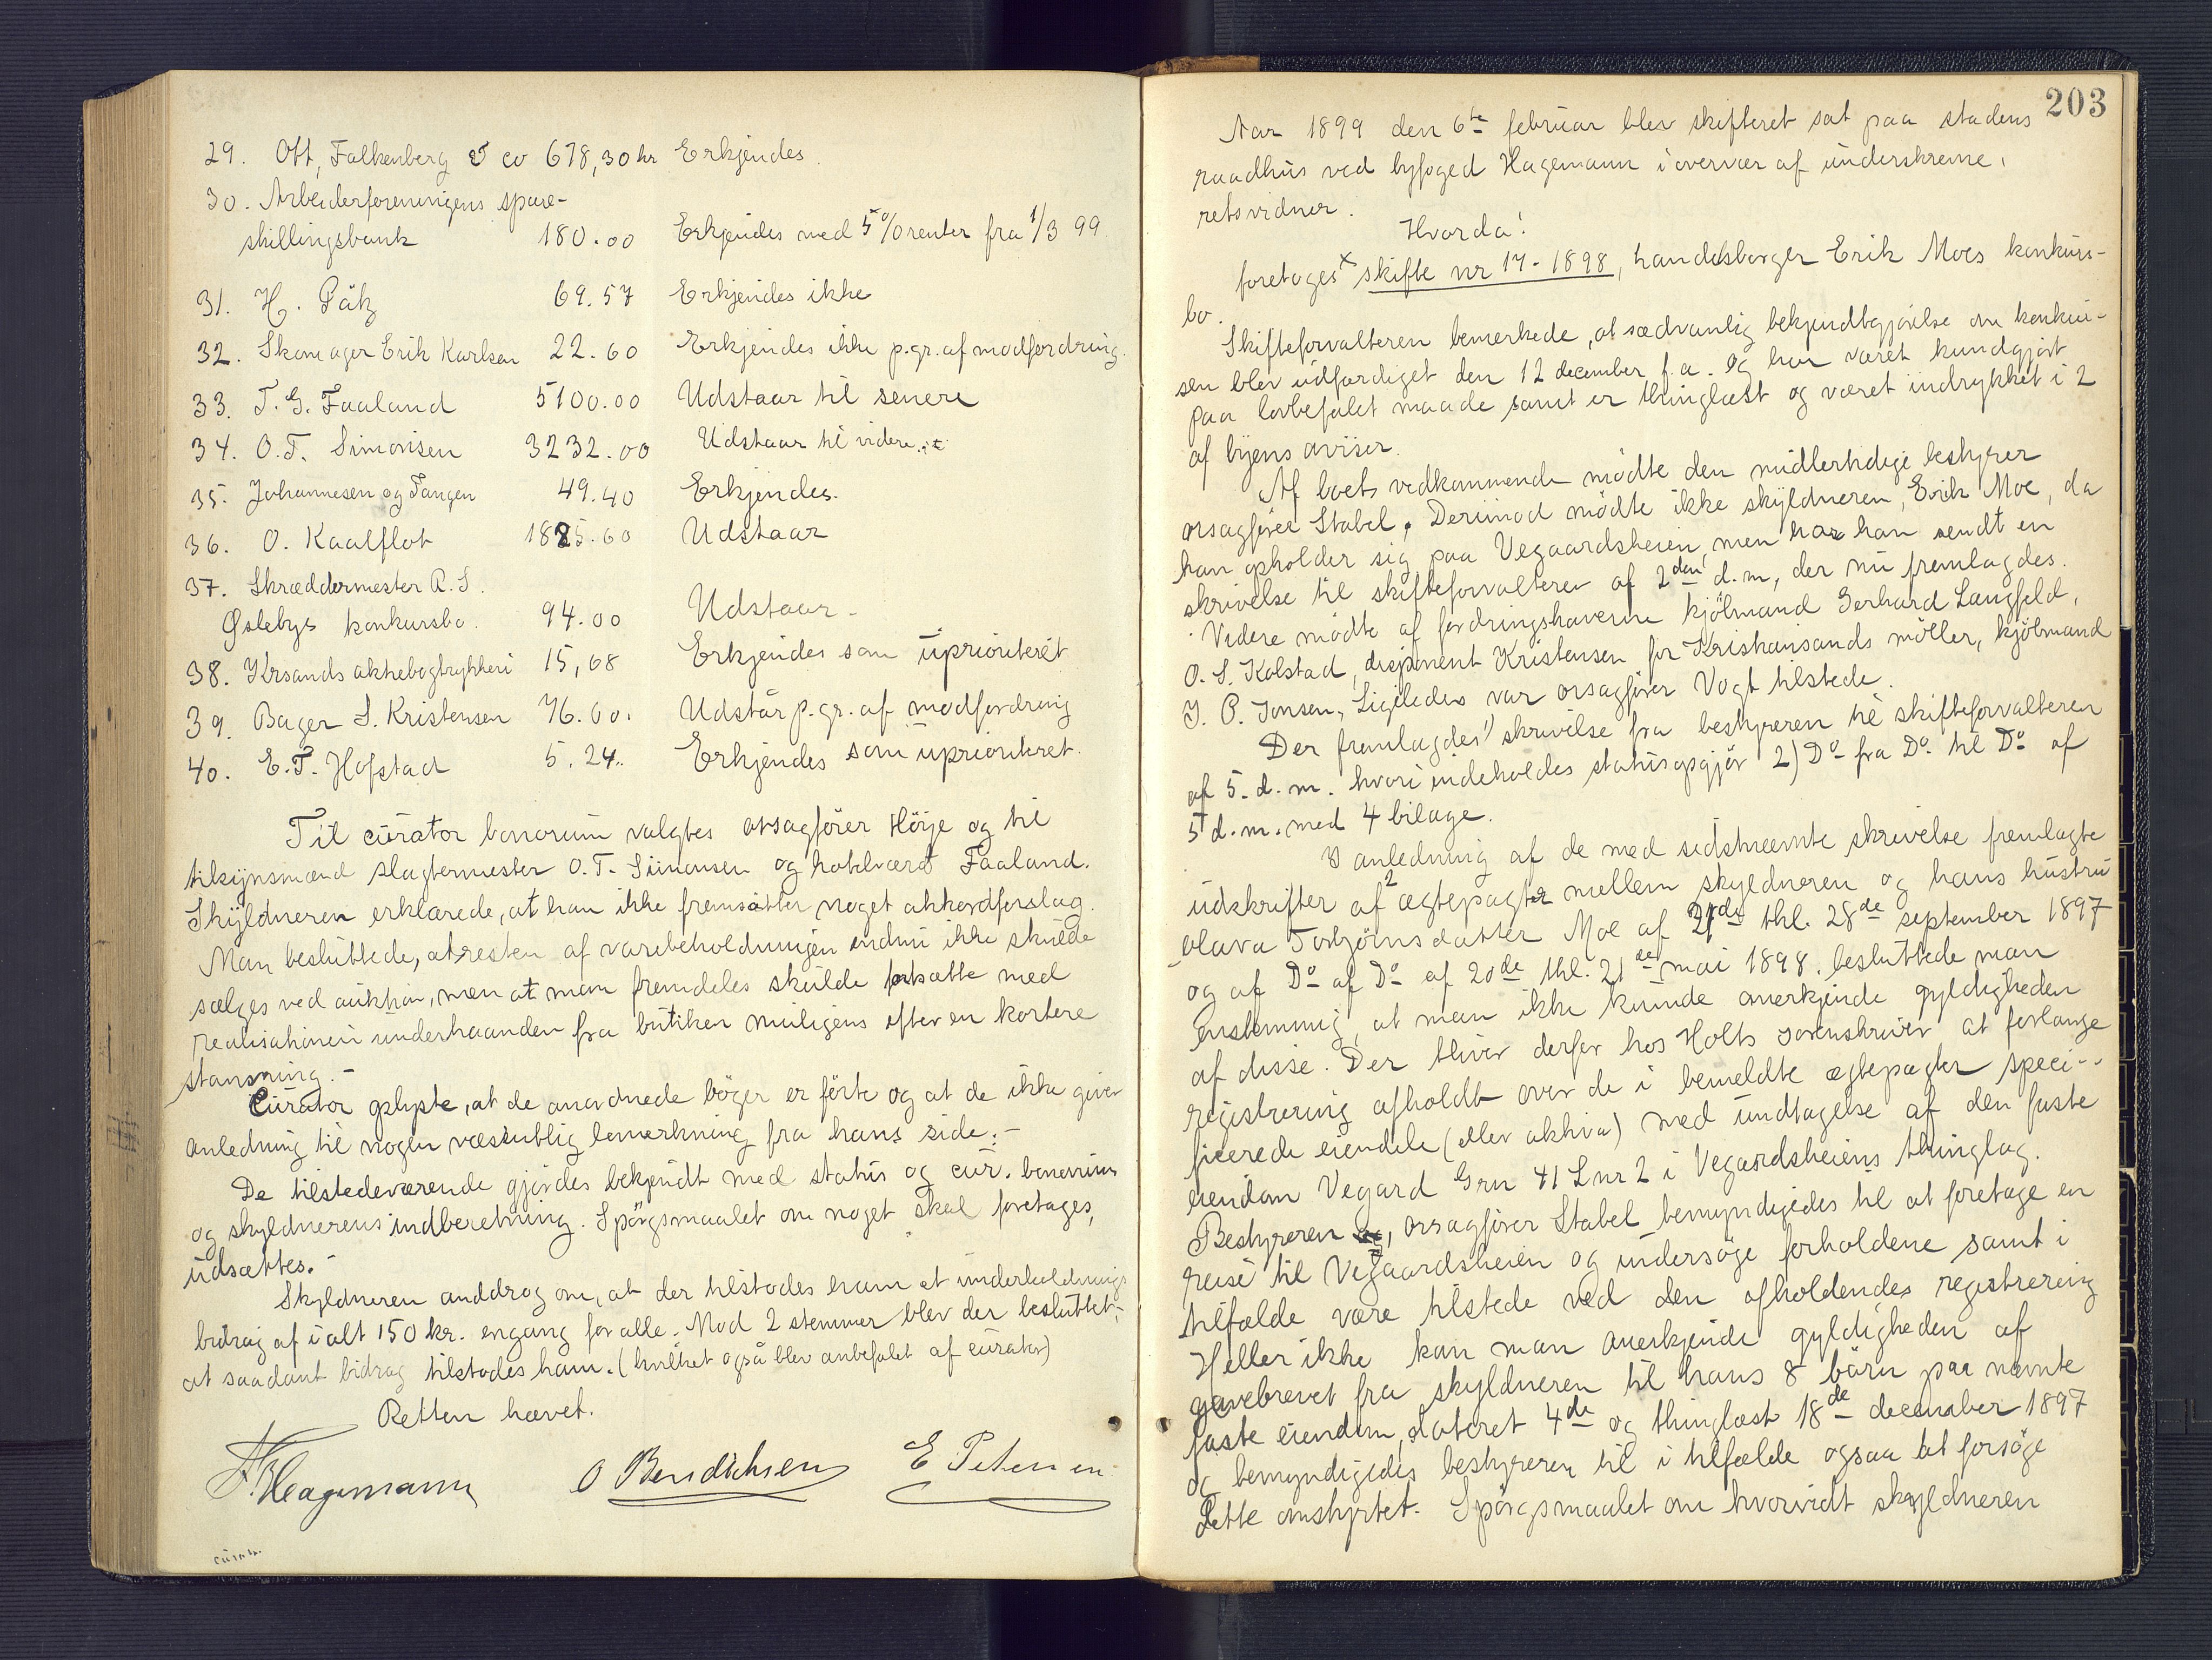 29. Ott, Falkenberg & co 678,30 kr Erkjendes.
30. Arbeiderforeningens spare-
skillingsbank 180.00 Erkjendes med 5% renter fra 1/3 99.
31. H. Pätz 69.57 Erkjendes ikke
32. Skomager Erik Karlsen 22.60 Erkjendes ikke p.gr.af modfordring.
33. T. G. Faaland 5100.00 Udstaar til senere
34. O. T. Simonsen 3232.00 Udstaar til videre
35. Johannesen og Tangen 49.40 Erkjendes.
36. O. Kaalflot 1885.60 Udstaar
37. Skræddermester R. S.
Øslebys konkursbo. 94.00 Udstaar.
38. Krsands aktiebogtrykkeri 15,68 Erkjendes som uprioriteret
39. Bager S. Kristensen 76.60. Udstår p.gr. af modfordring
40. E. T. Hofstad 5.24. Erkjendes som uprioriteret.
Til curator bonorum valgtes orsagfører Hörje og til
tilsynsmænd slagtermester O. T. Simonsen og hotelvært Faaland.
Skyldneren erklærede, at han ikke fremsætter noget akkordforslag.
Man besluttede, at resten af varebeholdningen endnu ikke skulde
sælges ved auktion, men at man fremdeles skulde fortsætte med
realisationen underhaanden fra butiken muligens efter en kortere
stansning.-
Curator oplyste, at de anordnede böger er förte og at de ikke giver
anledning til nogen væsentlig bemerkning fra hans side.-
De tilstedeværende gjordes bekjendt med status og cur. bonorums
og skyldnerens indberetning. Spörgsmaalet om noget skal foretages,
udsættes.-
Skyldneren anddrog om, at der tilstodes ham et underholdnings
bidrag af ialt 150 kr. engang for alle. Mod 2 stemmer blev der besluttet,
at saadant bidrag tilstodes ham. (hvilket også blev anbefalet af curator)
Retten hævet.
Hagemann O Bendichsen E Petersen
203
Aar 1899 den 6te februar blev skifteret sat paa stadens
raadhus ved byfoged Hagemann i overvær af underskrevne
retsvidner.
Hvorda!
foretoges x skifte nr 17-1898, handelsborger Erik Moes konkurs-
bo.
Skifteforvalteren bemerkede, at sædvanlig bekjendtgjörelse om konkur-
sen blev udfærdiget den 12 december f.a. og har været kundgjort
paa lovbefalet maade samt er thinglæst og været indrykket i 2
af byens aviser.
Af boets vedkommende mödte den midlertidige bestyrer
orsagfører Stabel. Derimod mödte ikke skyldneren, Erik Moe, da
han opholder sig paa Vegaardsheien, men har han sendt en
skrivelse til skifteforvalteren af 2den d.m, der nu fremlagdes.
Videre mödte af fordringshaverne kjöbmand Gerhard Langfeld,
O. S. Kolstad, disponent Kristensen for Kristiansands möller, kjöbmand
J. P. Jonsen, Ligeledes var orsagfører Vogt tilstede.
Der fremlagdes 1) skrivelse fra bestyreren til skifteforvalteren
af 5. d. m. hvori indeholdes statusopgjör 2) Do fra Do til Do af
5 d. m. med 4 bilage.
I anledning af de med sidstnævnte skrivelse fremlagte
udskrifter af 2 ægtepagter mellem skyldneren og hans hustru
Olava Torbjörnsdatter Moe af 21de thl. 28de september 1897
og af Do af Do af 20de thl. 21de mai 1898. besluttede man
enstemmig, at man ikke kunde anerkjende gyldigheden
af disse. Der bliver derfor hos Holts sorenskriver at forlange
registrering afholdt over de i bemeldte ægtepagter speci-
ficerede eiendele (eller aktiva) med undtagelse af den faste
eiendom Vegard Gnr 41 Lnr 2 i Vegardsheiens thinglag.
Bestyreren, orsagfører Stabel bemyndigedes til at foretage en
reise til Vegaardsheien og undersöge forholdene samt i
tilfælde være tilstede ved den afholdendes registrering
Heller ikke kan man anerkjende gyldigheden af
gavebrevet fra skyldneren til hans 8 börn paa nævnte
faste eiendom, dateret 4de og thinglæst 18de december 1897
og bemyndigedes bestyreren til i tilfælde ogsaa at forsöge
dette omstyrtet. Spörgsmaalet om hvorvidt skyldneren